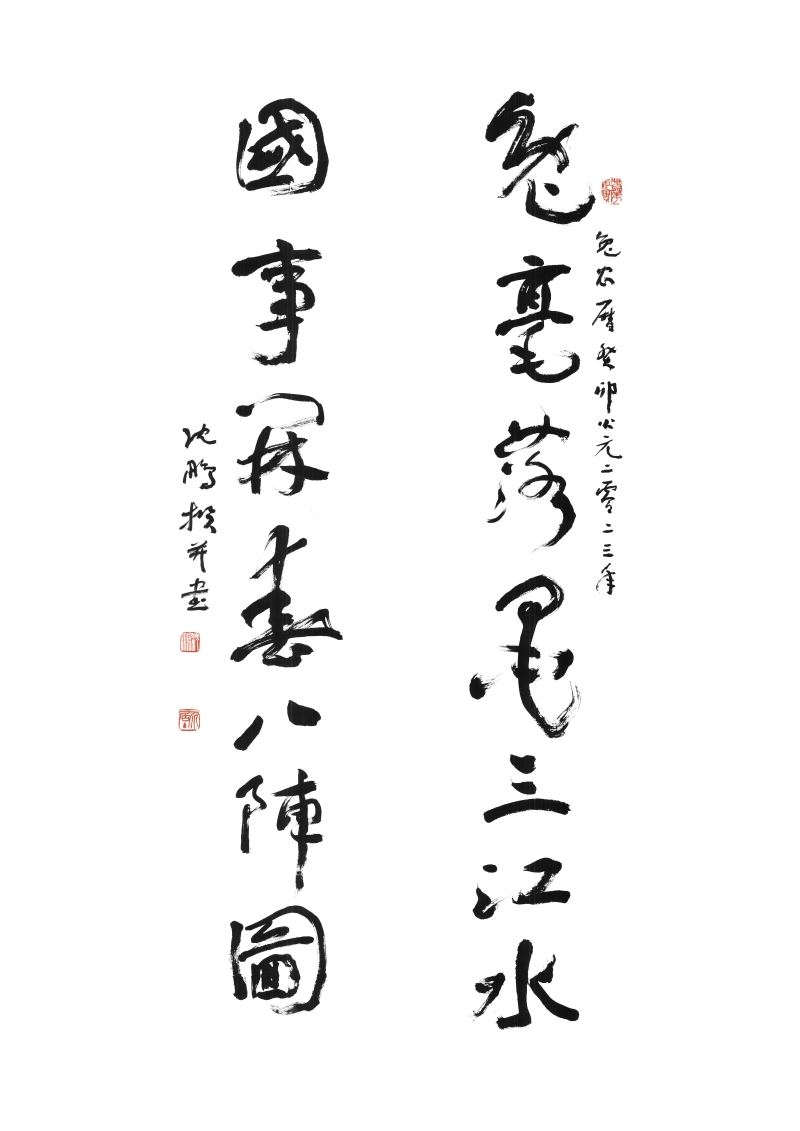 兔农曆癸卯公元二零二三年
兔毫落墨三江水
國事開春八陣圖
沈鵬撰并書